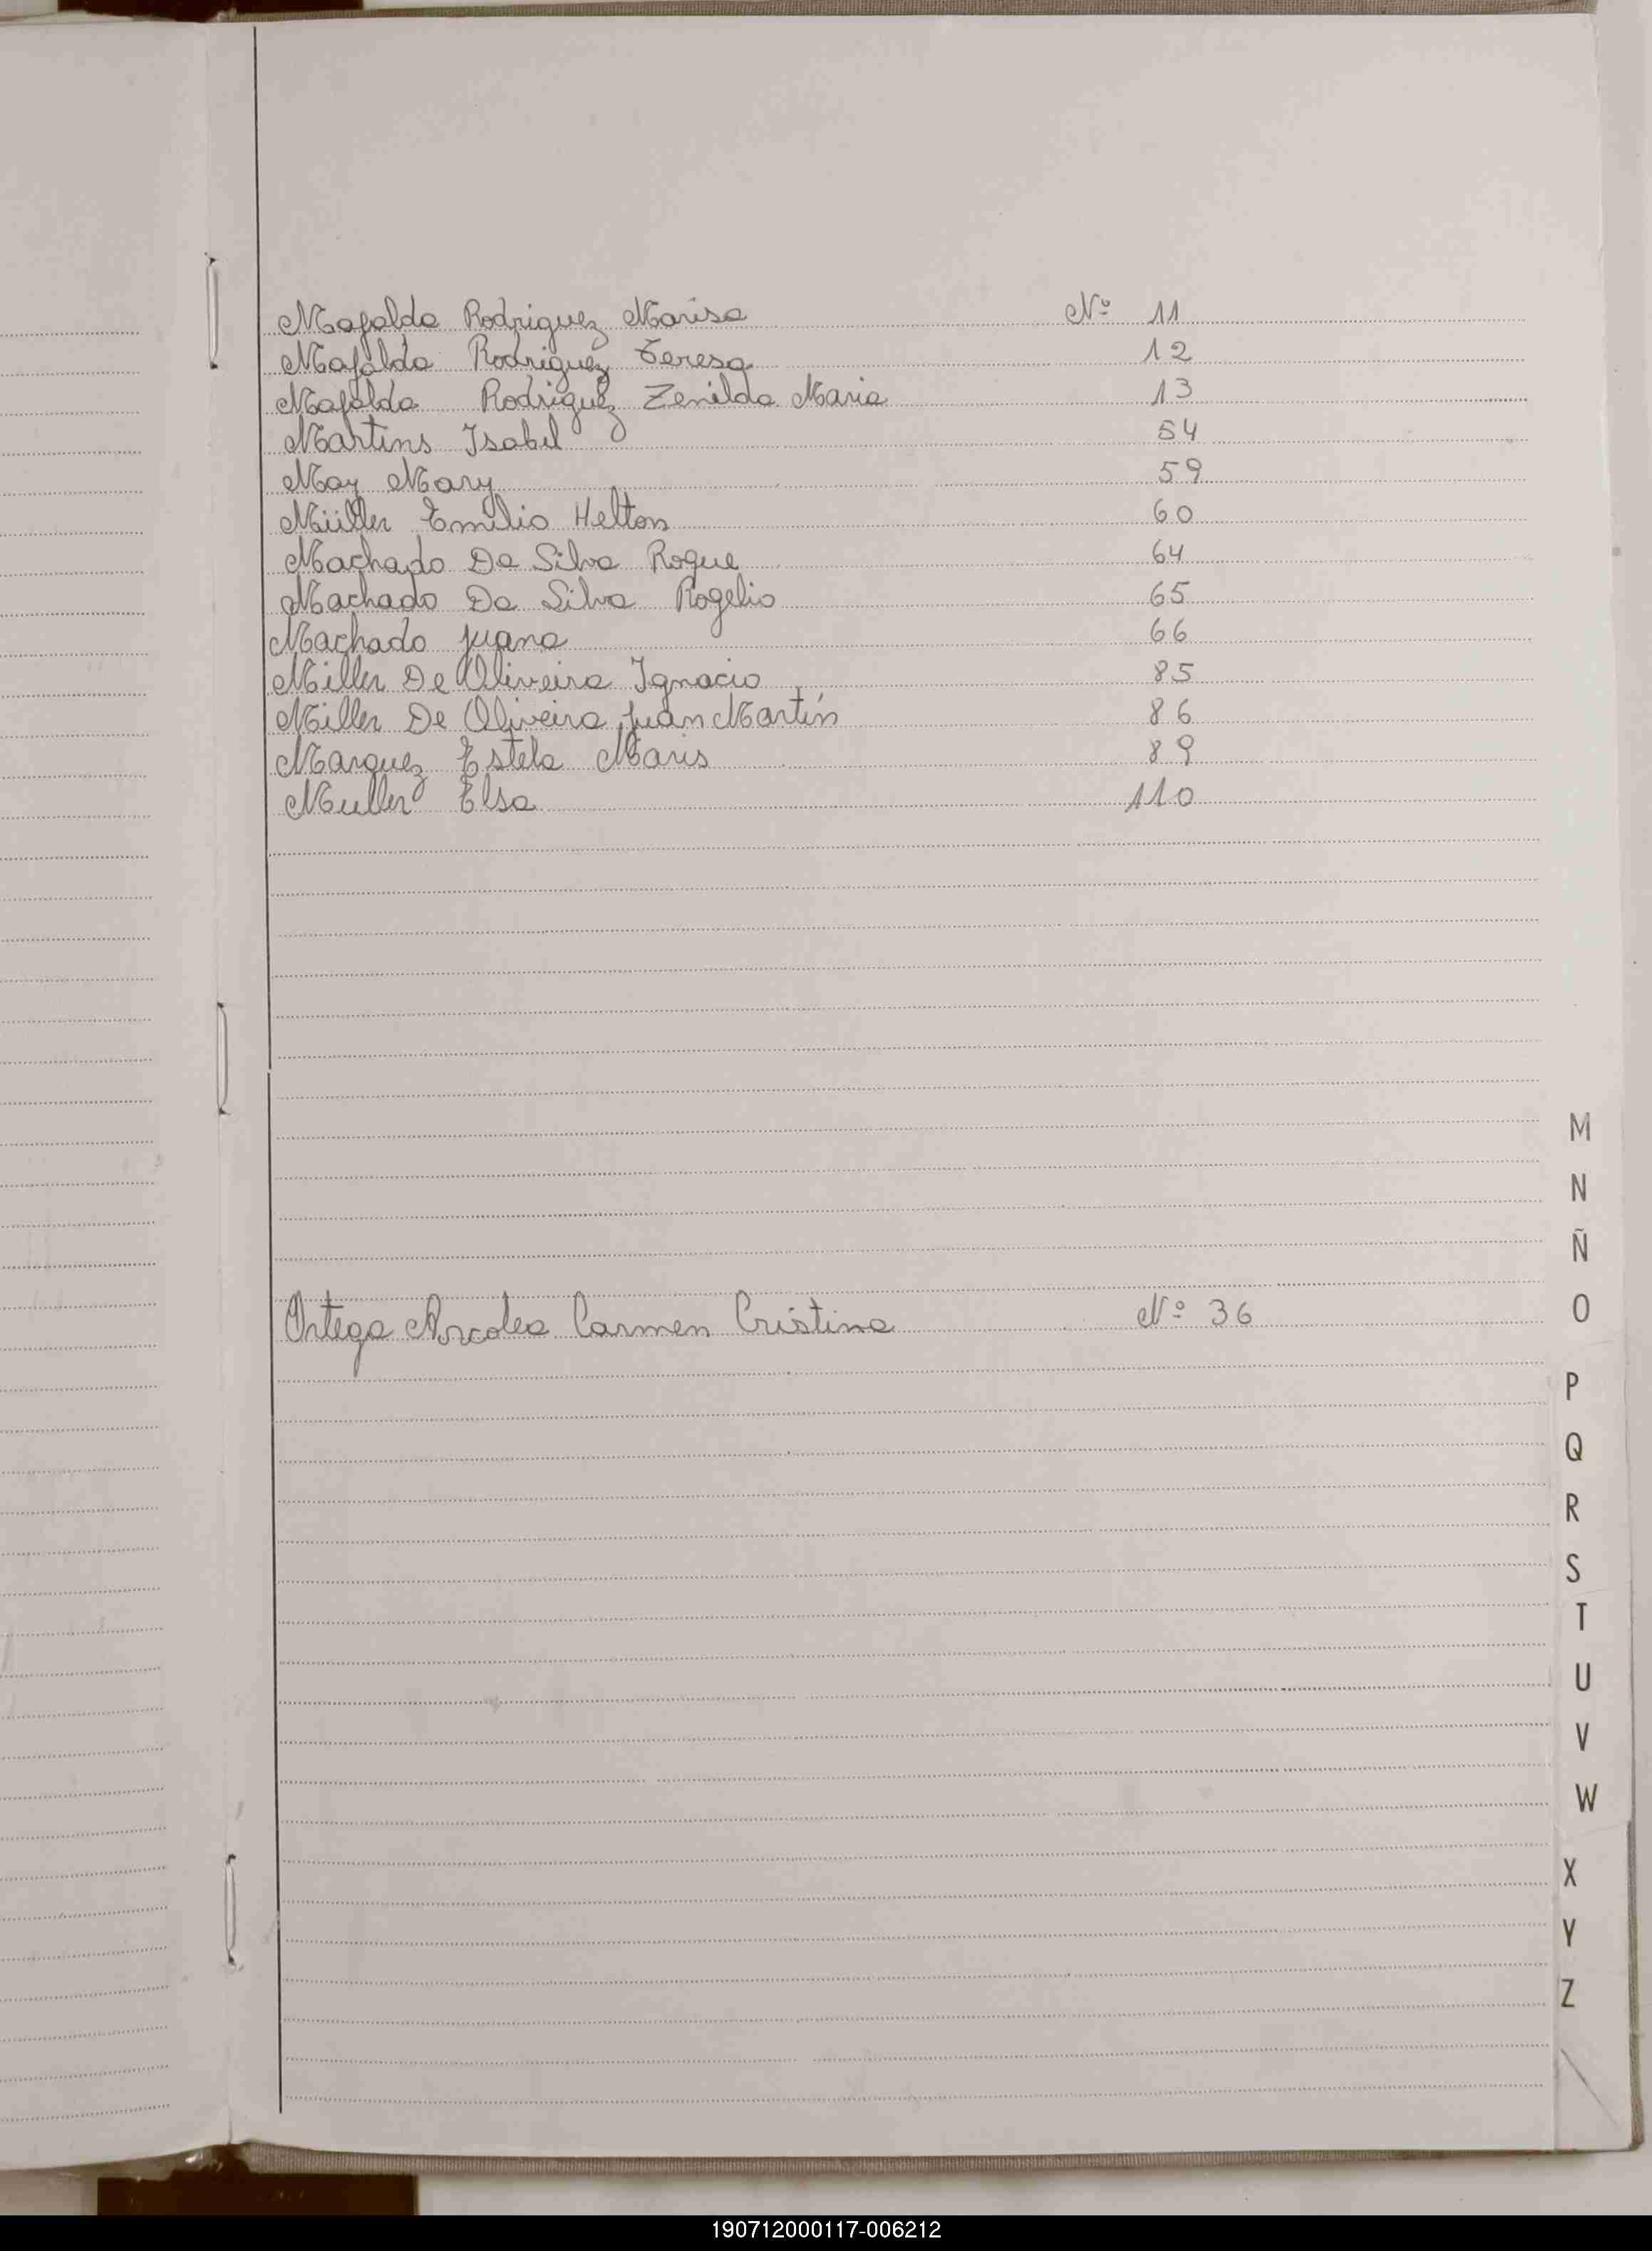 Mafalda Rodriguez Marisa Nº 11
Mafalda Rodriguez Teresa 12
Mafalda Rodriguez Zenilda Maria 13
Martins Isabel 54
May Mary 59
Müller Emilio Helton 60
Machado Da Silva Roque 64
Machado Da Silva Rogelio 65
Machado Juana 66
Miller De Oliveira Ignacio 85
Miller De Oliveira Juan Martín 86
Marquez Estela Maris 89
Muller Elsa 110
M
N
Ñ
Ortega Arcolea Carmen Cristina Nº 36
O
P
Q
R
S
T
U
V
W
X
Y
Z
190712000117-006212